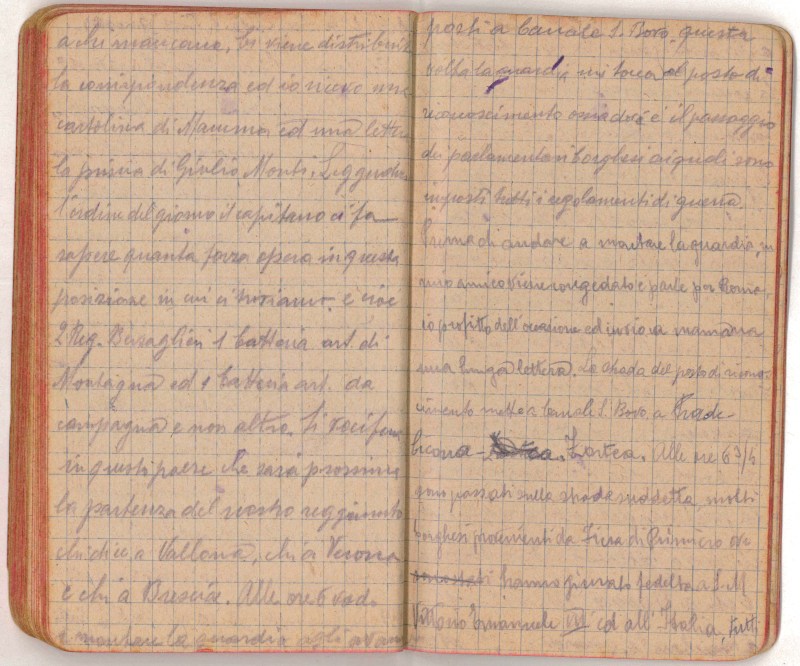 a chi mancano. Ci viene distribuita
la corrispondenza ed io ricevo una
cartolina di Mamma ed una lettera
la prima di Giulio Monti. Leggendo
l'ordine del giorno il capitano ci fa
sapere quanta forza opera in questa
posizione in cui ci troviamo e cioè
2 Reg. Bersaglieri 1 batteria art. di
Montagna ed 1 batteria art. da
campagna e non altro. Si vocifera
in questi paese che sarà prossima
la partenza del nostro reggimento
chi dice a Vallona, chi a Verona
e chi a Brescia. Alle ore 6 vado
a montare la guardia agli avam
posti a Canale S. Bovo, questa
volta la guardia mi tocca al posto di
riconoscimento ossia dov'è il passaggio
dei parlamentari borghesi ai quali sono
imposti tutti i regolamenti di guerra.
Prima di andare a montare la guardia, un
mio amico viene congedato e parte per Roma,
io profitto dell'occasione ed invio a mamma
una lunga lettera. La strada del posto di ricono-
scimento mette a Canale S. Bovo, a Prade-
Zortea. Alle ore 6 3/4
son passati sulla strada suddetta molti
borghesi provenienti da Fiera di Primiero ove
hanno giurato fedeltà a S. M.
Vittorio Emanuele III ed all'Italia, tutti